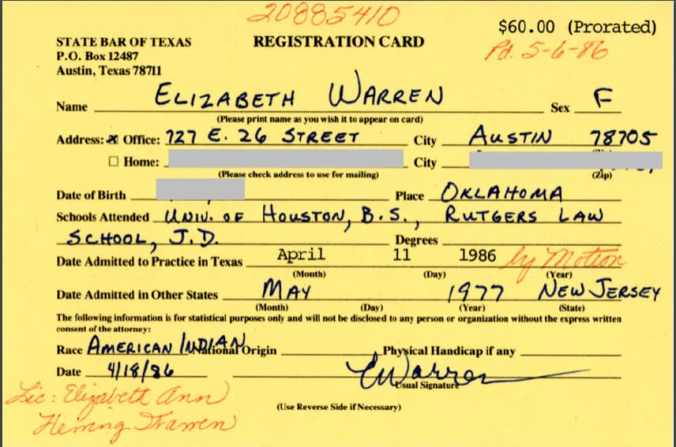 20885410
$60.00 (Prorated)
STATE BAR OF TEXAS
REGISTRATION CARD
Pd. 5-6-86
P.O. Box 12487
Austin, Texas 78711
Name ELIZABETH WARREN Sex F
(Please print name as you wish it to appear on card)
Address: x Office: 727 E. 26 STREET City AUSTIN 78705
☐ Home: City
(Please check address to use for mailing) (Zip)
Date of Birth Place OKLAHOMA
Schools Attended UNIV. OF HOUSTON, B.S., RUTGERS LAW
SCHOOL, J.D. Degrees
Date Admitted to Practice in Texas April 11 1986 by Motion
(Month) (Day) (Year)
Date Admitted in Other States MAY 1977 NEW JERSEY
(Month) (Day) (Year) (State)
The following information is for statistical purposes only and will not be disclosed to any person or organization without the express written
consent of the attorney:
Race AMERICAN INDIAN National Origin Physical Handicap if any
Date 4/18/86 EWarren
Usual Signature
Lic: Elizabeth Ann
Herring Warren
(Use Reverse Side if Necessary)